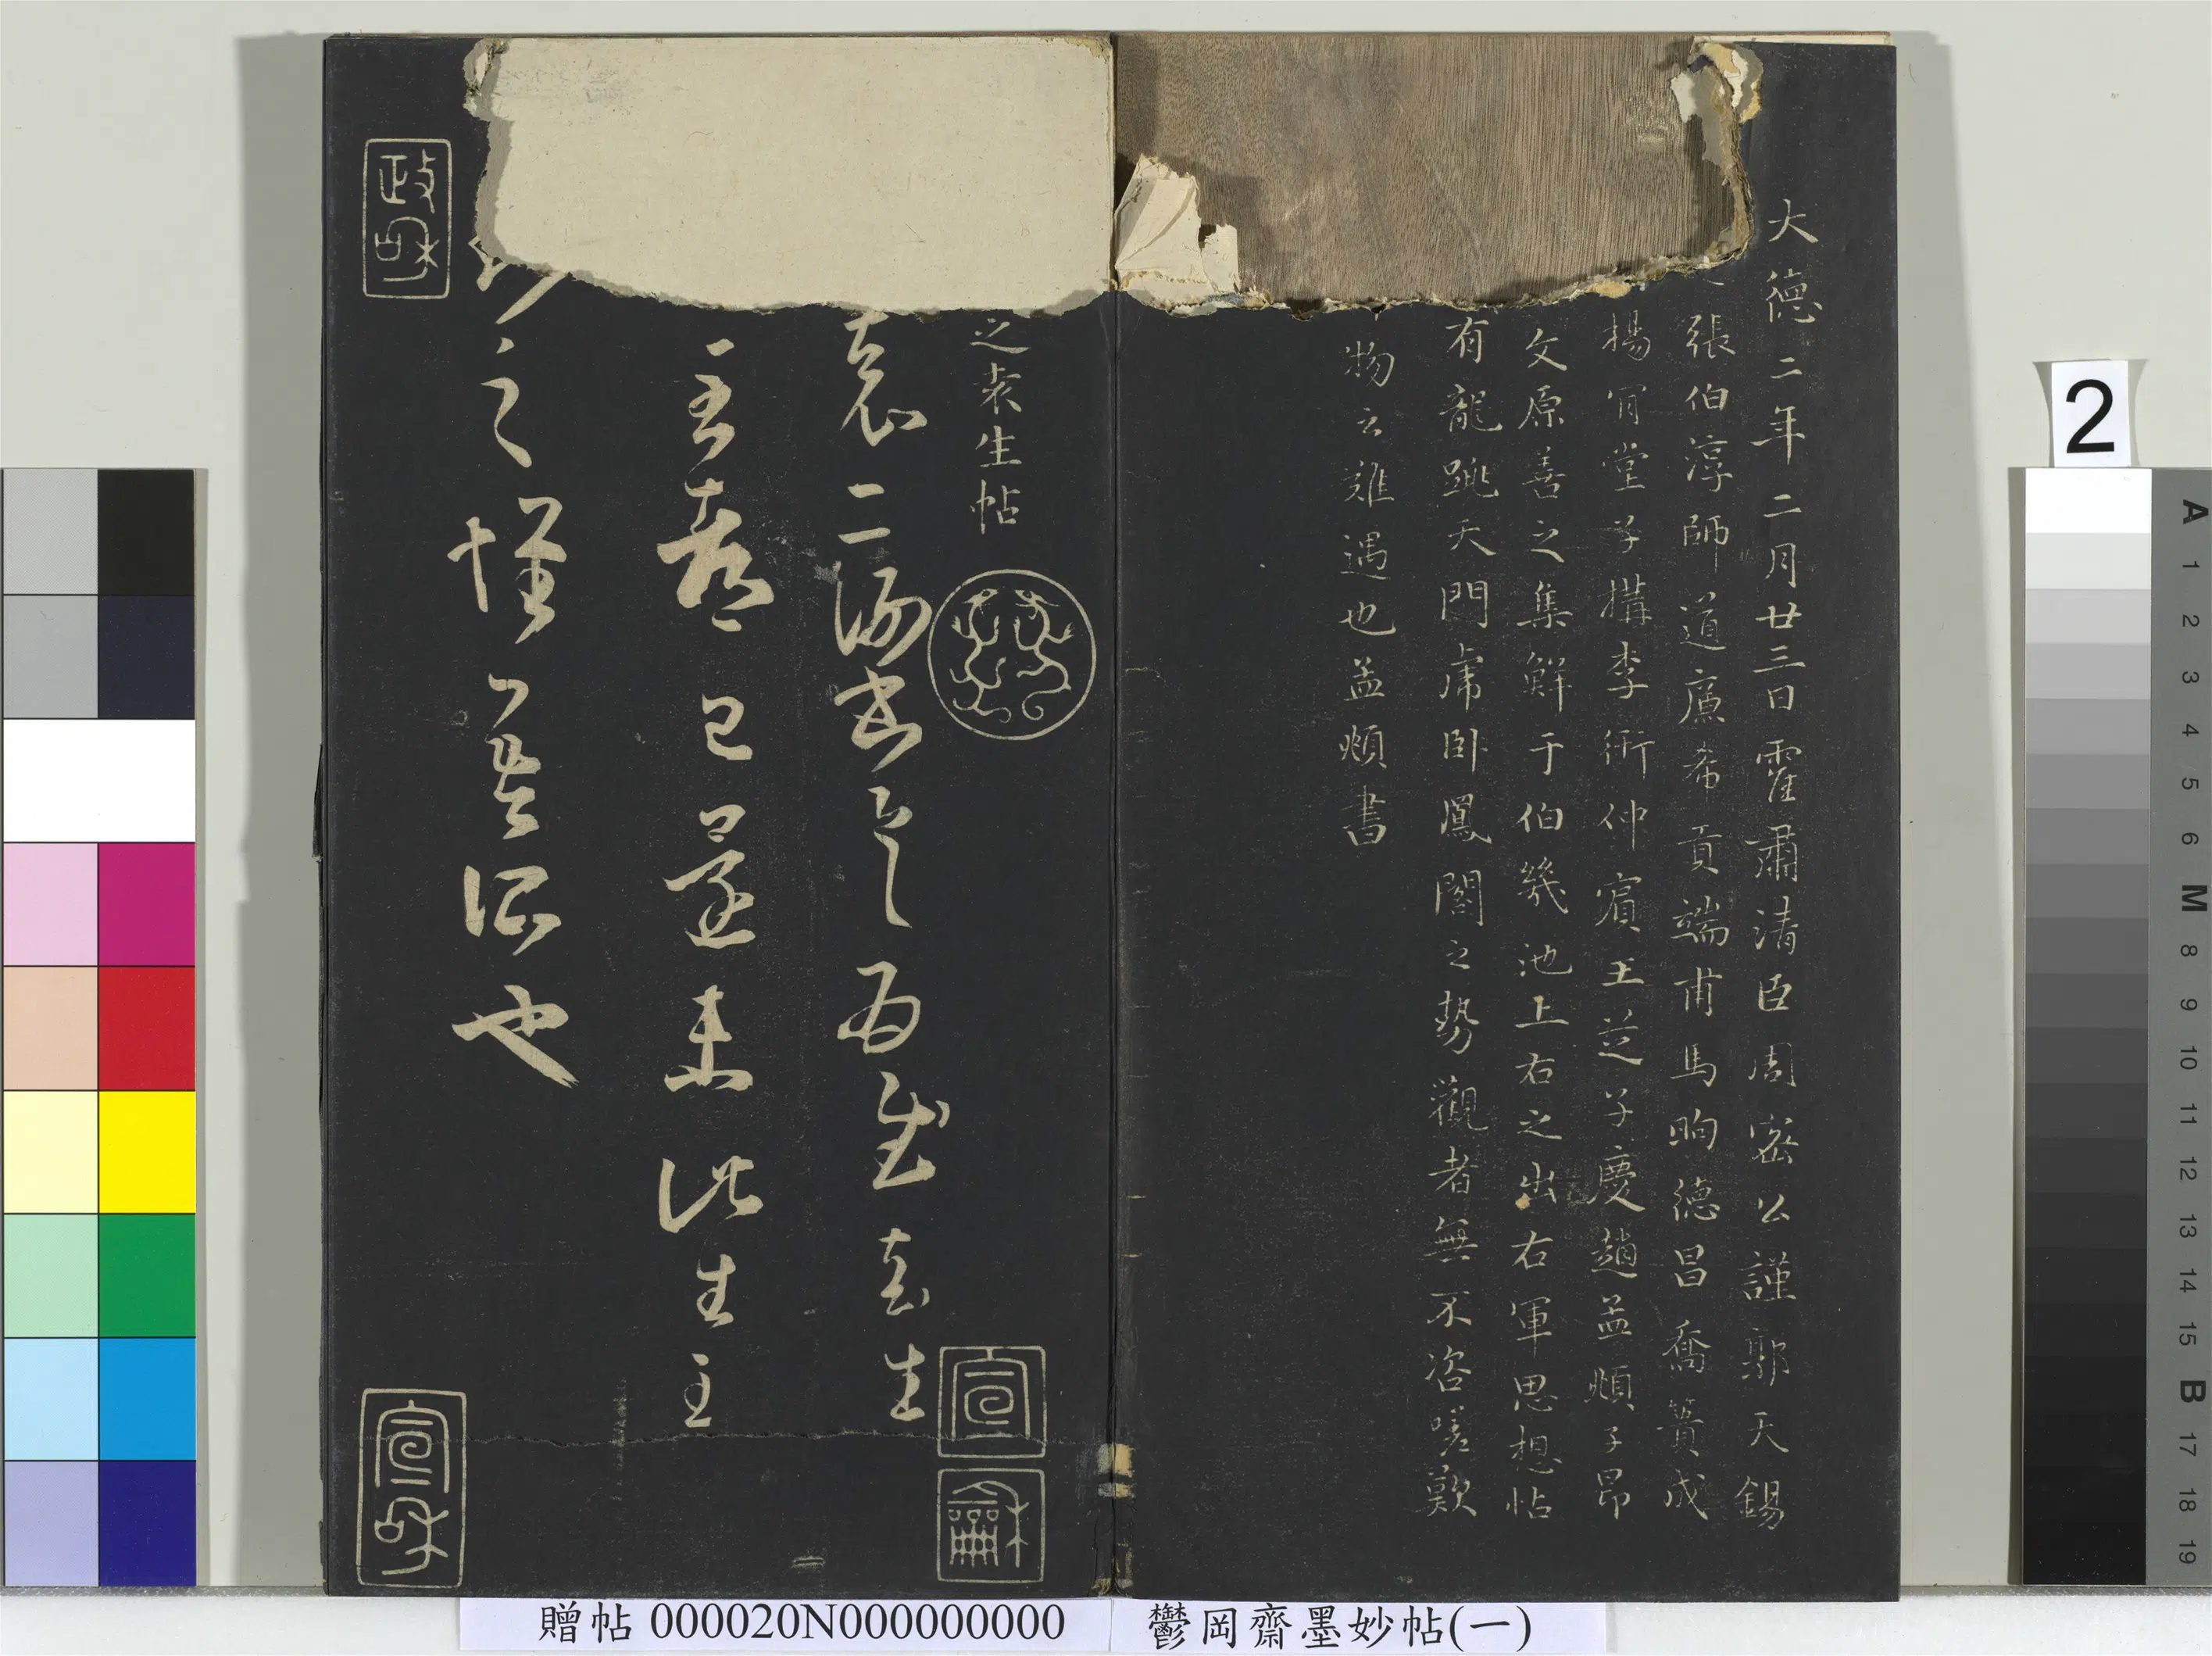 大德二年二月廿三日霍肅清臣周密公謹郭天錫
張伯淳師道廉希貢端甫馬昫德昌喬簣成
楊肯堂子構李衎仲賓王芝子慶趙孟頫子昂
文原善之集鮮于伯幾池上右之出右軍思想帖
有龍跳天門虎臥鳳閣之勢觀者無不咨嗟歎
物之難遇也孟頫書
之袁生帖
袁二謝書具為慰袁生
至都已還未此生至
之懷吾所也
政和
宣和
宣
龢
贈帖 000020N000000000
鬱岡齋墨妙帖(一)
2
A 1 2 3 4 5 6 M 8 9 10 11 12 13 14 15 B 17 18 19